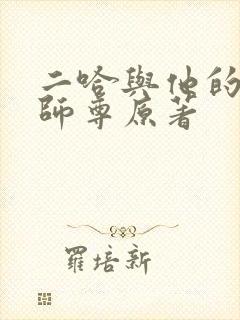 二哈與他的
師尊原著
羅培新